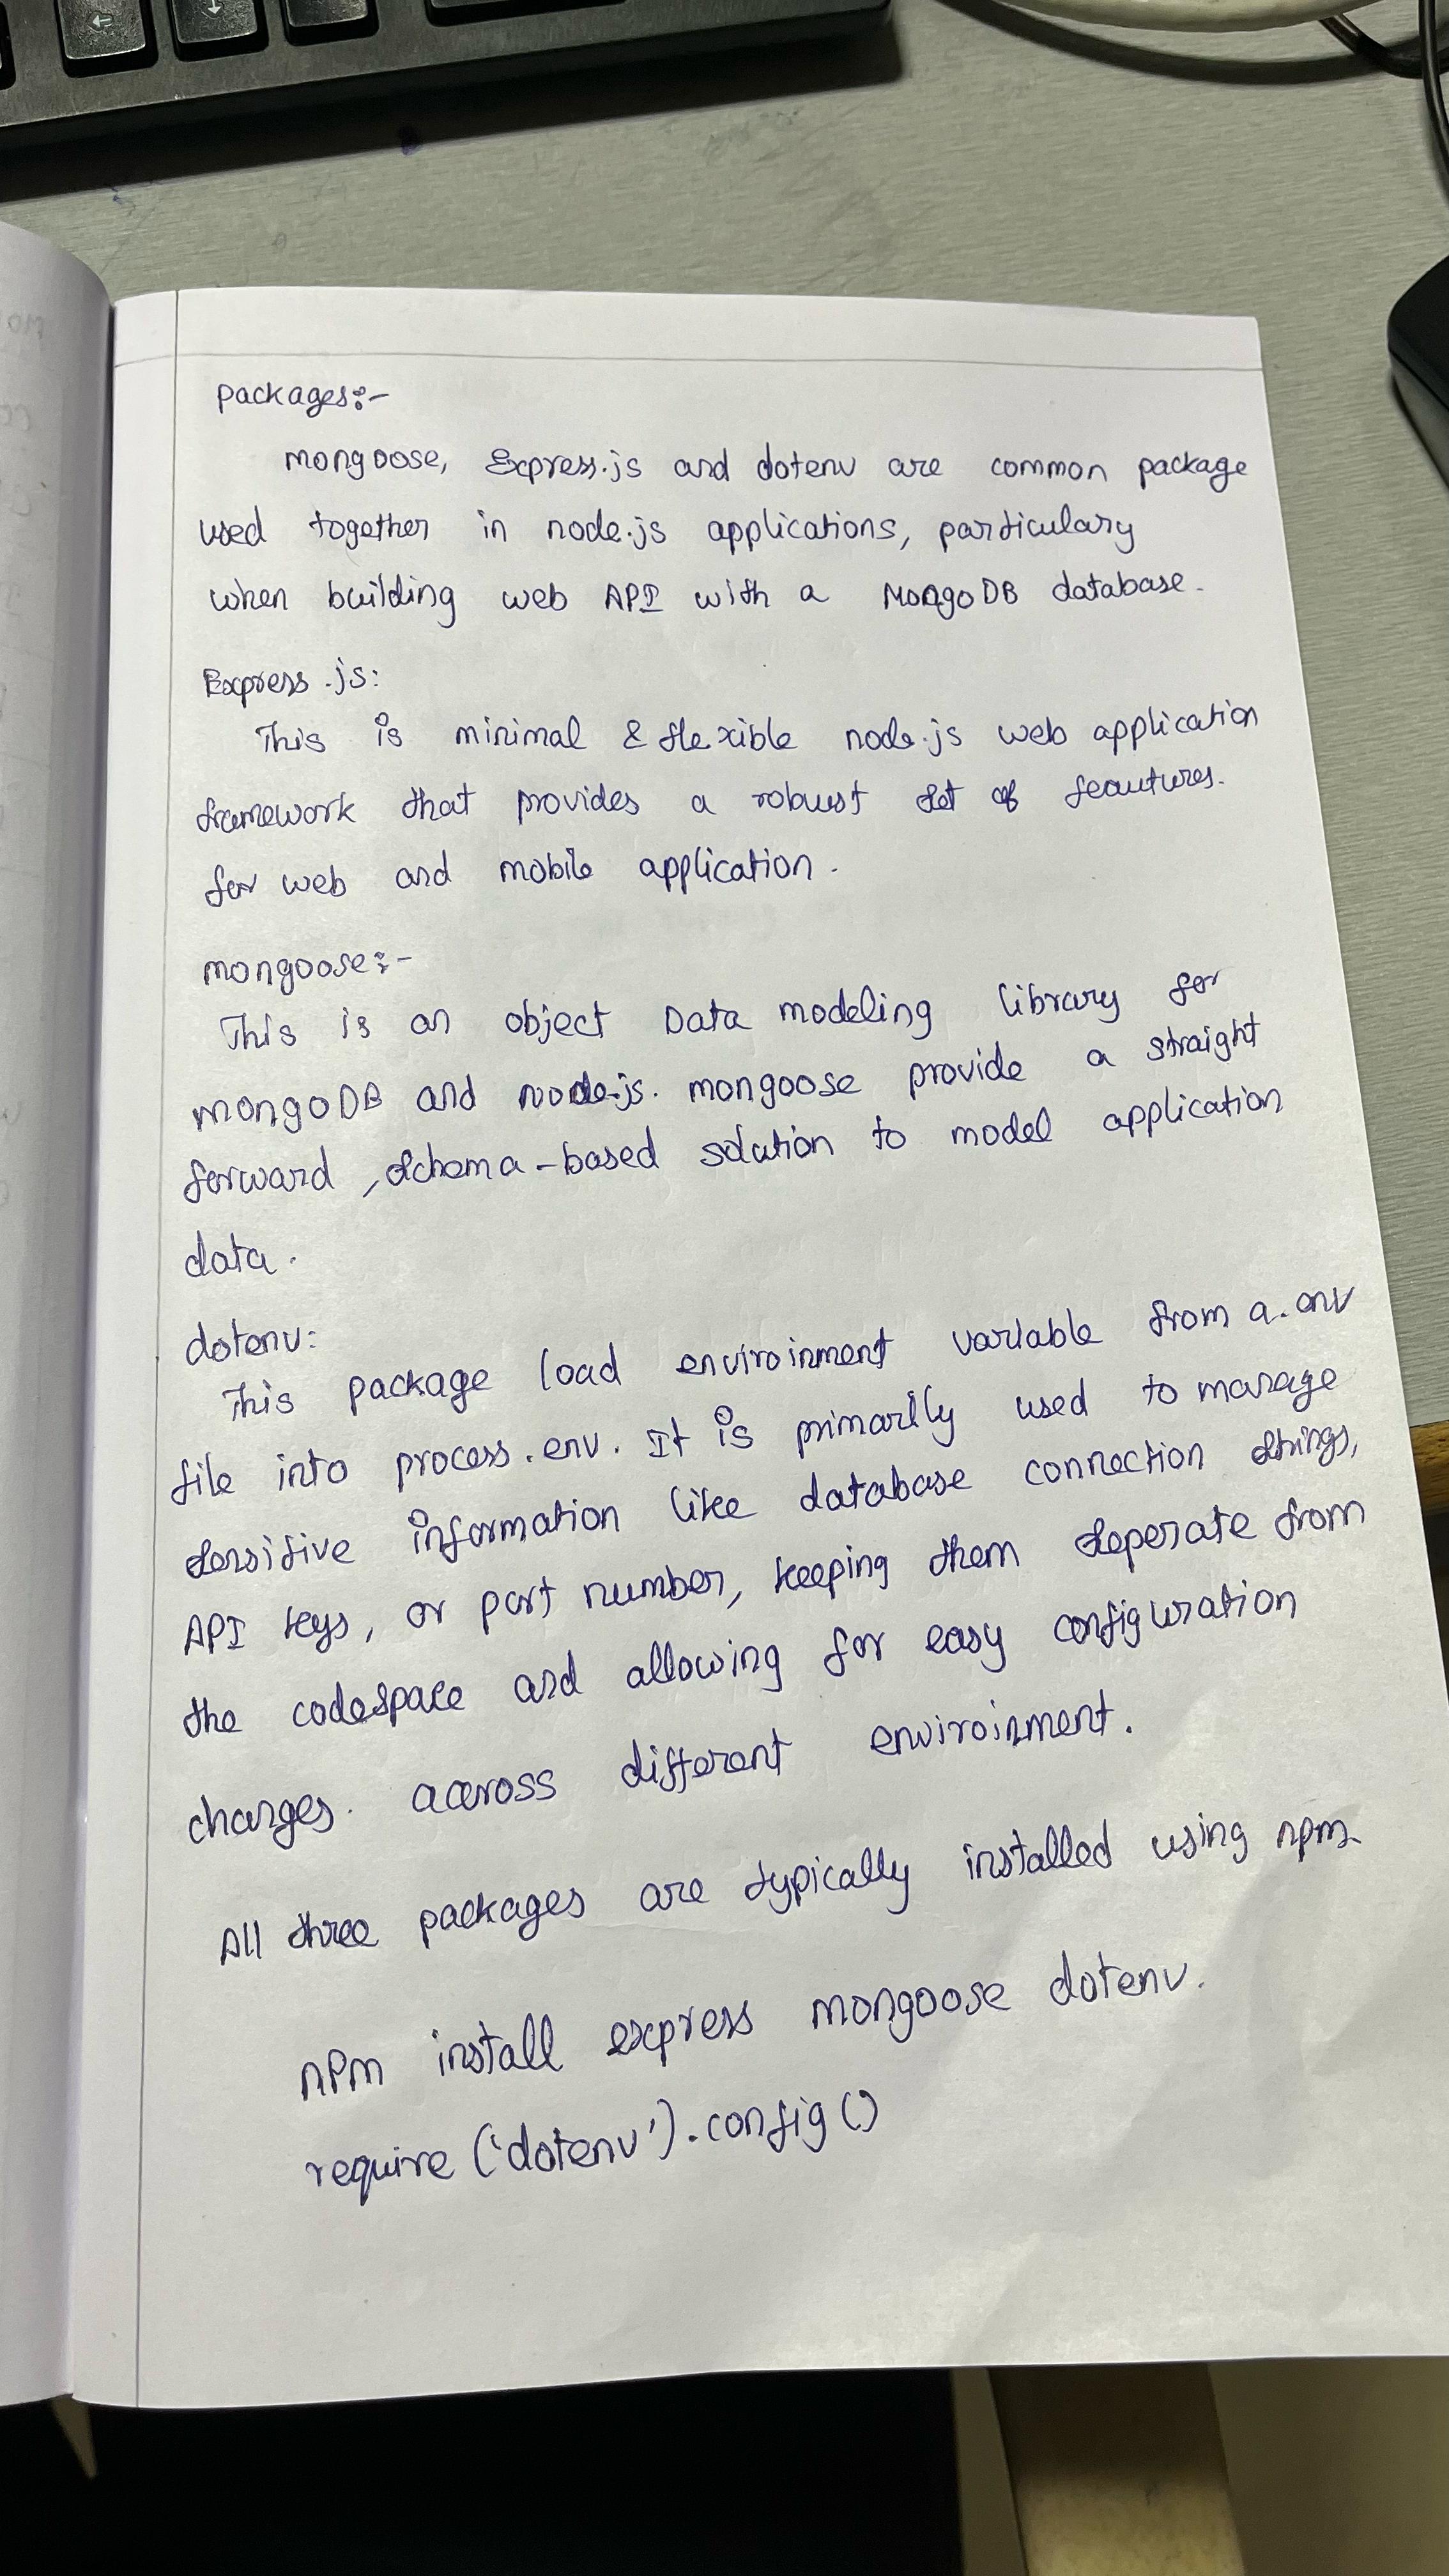 packages:-
mongoose, Express.js and dotenv are common package
used together in node.js applications, particulary
when building web API with a MongoDB database.
Express.js:
This is minimal & flexible node.js web application
framework that provides a robust set of feautures.
for web and mobile application.
mongoose:-
This is an object Data modeling library for
mongoDB and node.js. mongoose provide a straight
forward, schema-based solution to model application
data.
dotenv:
This package load enviroinment variable from a .env
file into process.env. It is primarily used to manage
sensitive information like database connection strings,
API keys, or port number, keeping them seperate from
the codespace and allowing for easy configuration
changes. across different enviroinment.
All three packages are typically installed using npm
npm install express mongoose dotenv.
require ('dotenv').config()